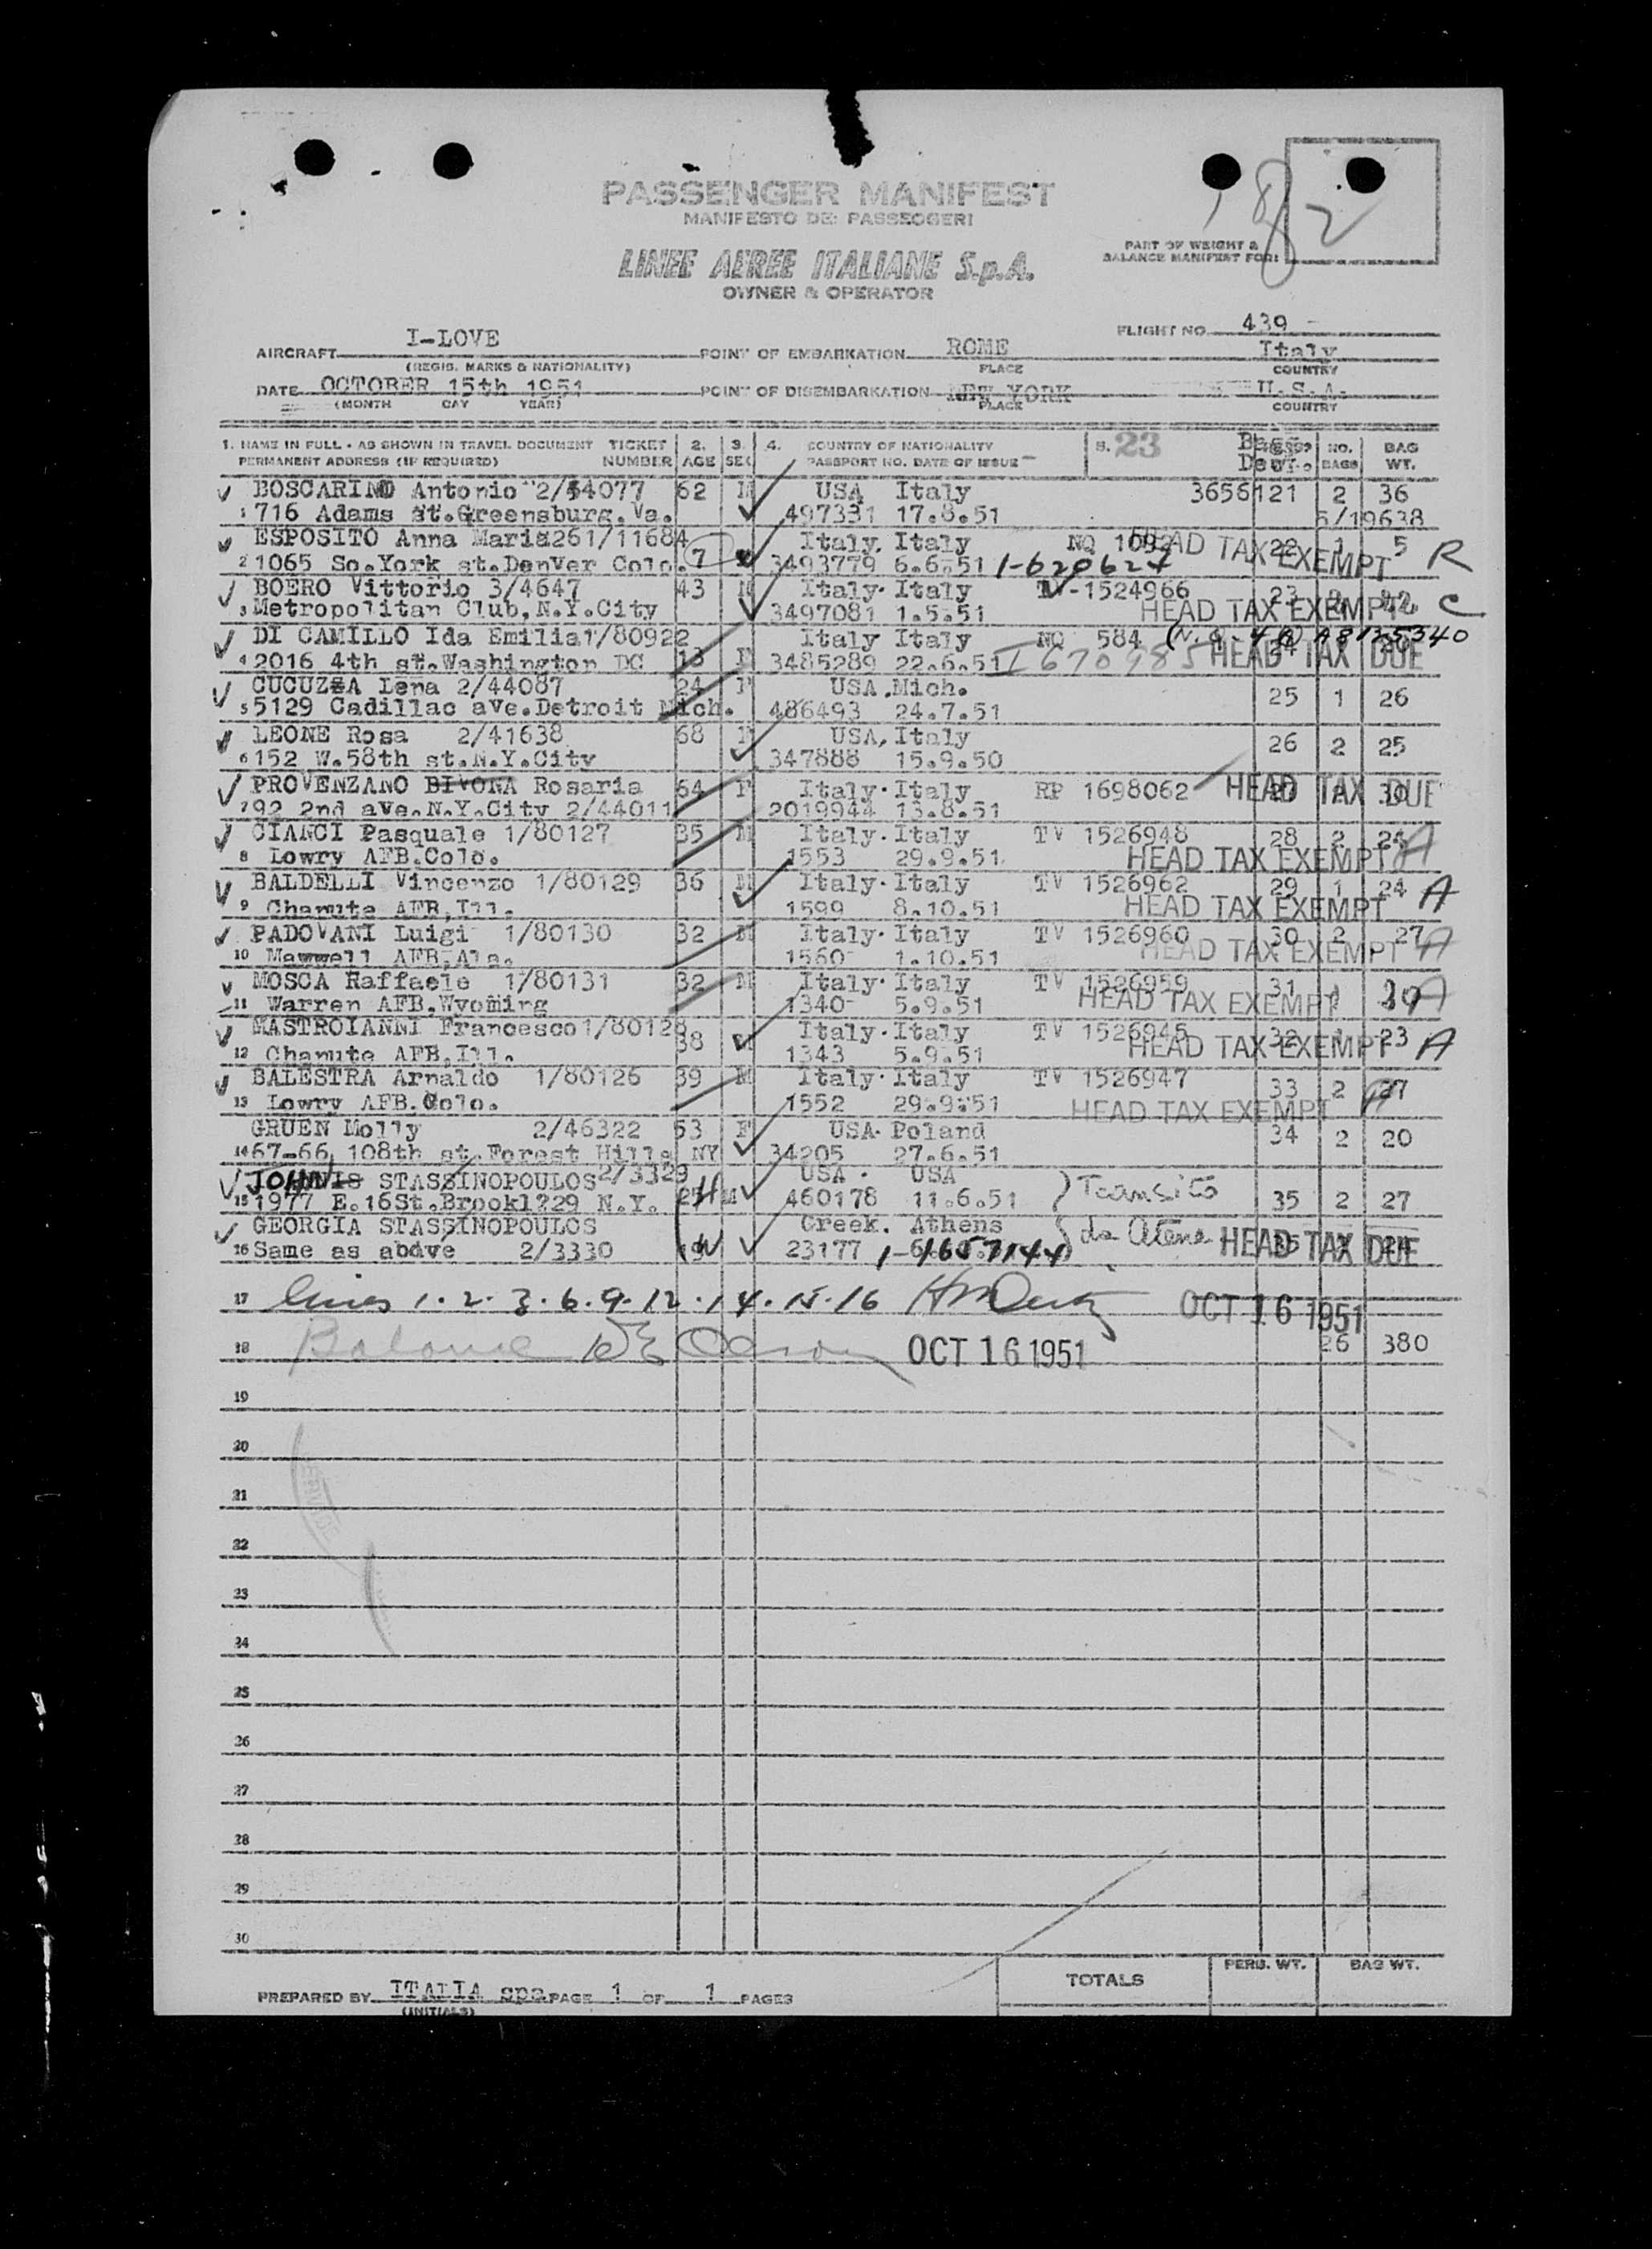 PASSENGER MANIFEST
MANIFESTO DEI PASSEGGERI
LINEE AEREE ITALIANE S.p.A.
OWNER & OPERATOR
PART OF WEIGHT &
BALANCE MANIFEST FOR:
2
FLIGHT NO. 439
AIRCRAFT I-LOVE POINT OF EMBARKATION ROME Italy
(REGIS. MARKS & NATIONALITY) PLACE COUNTRY
DATE OCTOBER 15th 1951 POINT OF DISEMBARKATION NEW YORK U.S.A.
(MONTH DAY YEAR) PLACE COUNTRY
1. NAME IN FULL - AS SHOWN IN TRAVEL DOCUMENT TICKET 2. 3. 4. COUNTRY OF NATIONALITY 5. 23 NO. BAG
PERMANENT ADDRESS (IF REQUIRED) NUMBER AGE SEX PASSPORT NO. DATE OF ISSUE BAGS WT.
BOSCARINO Antonio 2/44077 62 M USA Italy 3656121 2 36
1 716 Adams st.Greensburg.Va. 497331 17.8.51 5/19638
ESPOSITO Anna Maria261/11684 Italy. Italy NQ HEAD TAX EXEMPT 22 1 5 R
2 1065 So.York st.DenVer Colo. 7 3493779 6.6.51 1-620624
BOERO Vittorio 3/4647 43 M Italy. Italy TV-1524966 23
3 Metropolitan Club,N.Y.City 3497081 1.5.51 HEAD TAX EXEMPT C
DI CAMILLO Ida Emilia1/80922 Italy Italy NQ 584 A8125340
4 2016 4th st.Washington DC 13 F 3485289 22.6.51 I670985 HEAD TAX DUE
CUCUZZA Lena 2/44087 24 F USA.Mich. 25 1 26
5 5129 Cadillac ave.Detroit Mich. 486493 24.7.51
LEONE Rosa 2/41638 68 F USA, Italy 26 2 25
6 152 W.58th st.N.Y.City 347888 15.9.50
PROVENZANO BIVONA Rosaria 64 F Italy.Italy RP 1698062 HEAD TAX DUE
7 92 2nd ave.N.Y.City 2/44011 2019944 13.8.51
CIANCI Pasquale 1/80127 35 M Italy.Italy TV 1526948 28 2 24 A
8 Lowry AFB.Colo. 1553 29.9.51 HEAD TAX EXEMPT
BALDELLI Vincenzo 1/80129 36 M Italy.Italy TV 1526962 29 1 24 A
9 Chanute AFB,Ill. 1599 8.10.51 HEAD TAX EXEMPT
PADOVANI Luigi 1/80130 32 M Italy.Italy TV 1526960 30 2 27 A
10 Maxwell AFB,Ala. 1560 1.10.51 HEAD TAX EXEMPT
MOSCA Raffaele 1/80131 32 M Italy.Italy TV 1526959 31 A
11 Warren AFB.Wyoming 1340 5.9.51 HEAD TAX EXEMPT
MASTROIANNI Francesco1/80128 38 M Italy.Italy TV 1526945 32 1 23 A
12 Chanute AFB,Ill. 1343 5.9.51 HEAD TAX EXEMPT
BALESTRA Arnaldo 1/80126 39 M Italy.Italy TV 1526947 33 2
13 Lowry AFB.Colo. 1552 29.9.51 HEAD TAX EXEMPT
GRUEN Molly 2/46322 53 F USA. Poland 34 2 20
14 67-66 108th st.Forest Hills NY 34205 27.6.51
JOHN STASSINOPOULOS 2/3329 M USA . USA
15 1977 E.16St.Brookl?29 N.Y. 25 460178 11.6.51 Transito 35 2 27
GEORGIA STASSINOPOULOS Creek. Athens da Atene HEAD TAX DUE
16 Same as above 2/3330 19 23177 1-1657144
17 lines 1.2.3.6.9.12.14.15.16 OCT 16 1951
18 Balance OCT 16 1951 26 380
19
20
21
22
23
24
25
26
27
28
29
30
PREPARED BY ITALIA spa PAGE 1 OF 1 PAGES TOTALS PERS. WT. BAG WT.
(INITIALS)